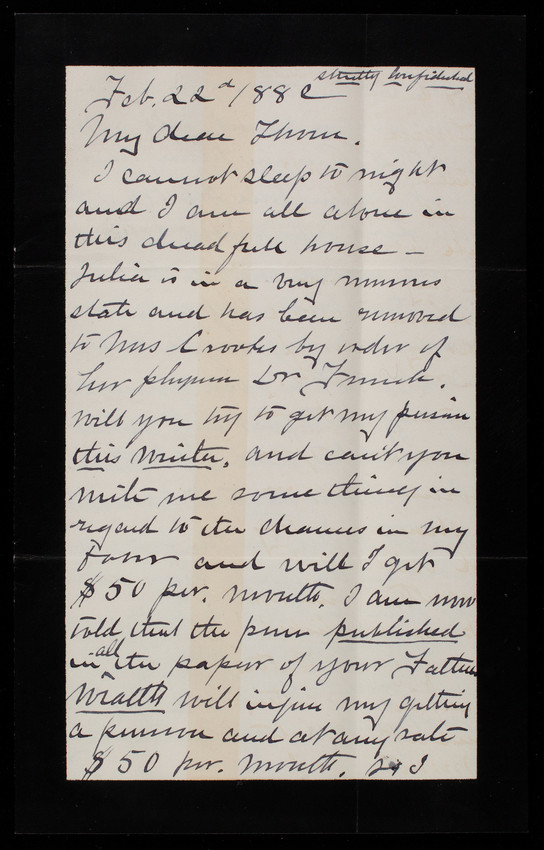 strictly Confidential
Feb. 22d/88
My dear Thom.
I cannot sleep to night
and I am all alone in
this dreadfull house —
Julia is in a very nervous
state and has been removed
to Mrs Crooks by order of
her physician Dr
Will you try to get my pension
this Winter, and can't you
write me some thing in
regard to the chances in my
favor and will I get
$50 per. month. I am now
told, that the puw published
in all the papers of your Fathers
Wealth will injure my getting
a pension and at any rate
$50 per. month. so I